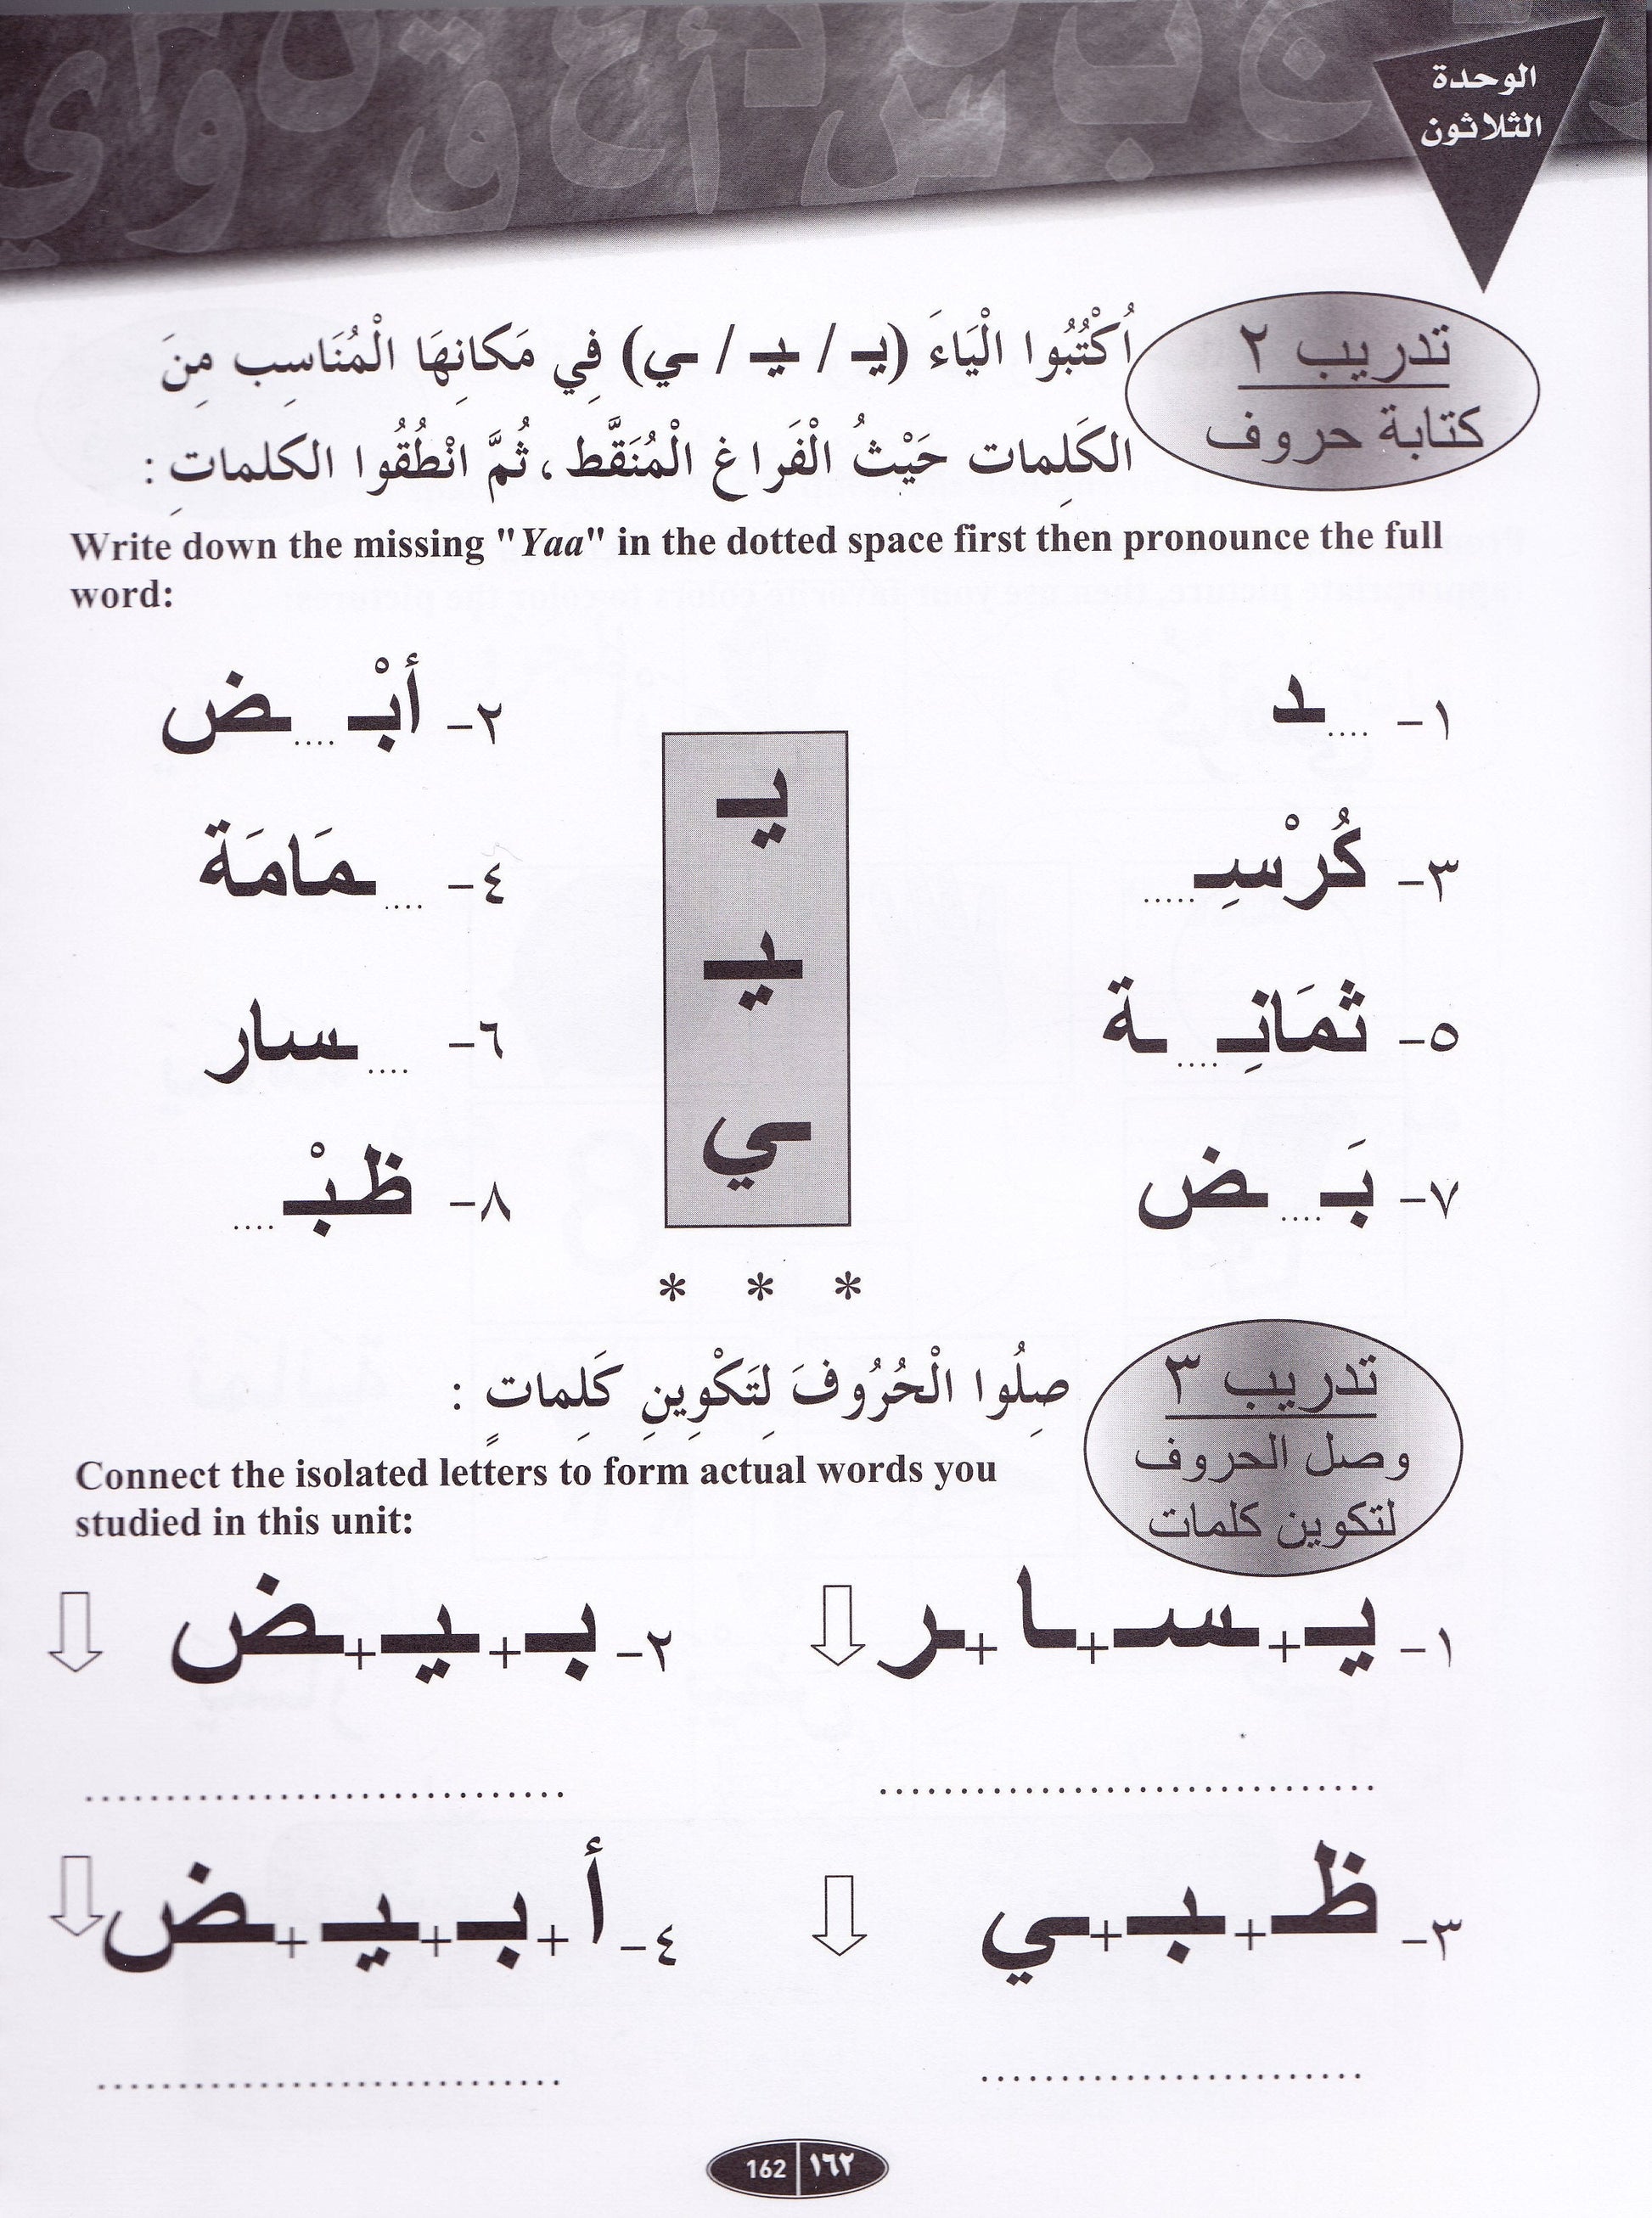 الوحدة
الثلاثون
تدريب ٢
كتابة حروف
اُكْتُبُوا الْيَاءَ (يـ / ـيـ / ـي) فِي مَكانِهَا الْمُنَاسِب مِنَ
الكَلِمات حَيْثُ الْفَراغِ الْمُنَقَّط، ثُمَّ انْطُقُوا الكلماتِ :
Write down the missing "Yaa" in the dotted space first then pronounce the full
word:
١- ....ـد
٢- أبْـ....ـض
٣- كُرْسِـ.....
٤- ....ـمَامَة
٥- ثمَانِـ....ـة
٦- ....ـسار
٧- بَـ....ـض
٨- ظبْـ....
يـ
ـيـ
ـي
* * *
تدريب ٣
وصل الحروف
لتكوين كلمات
صِلُوا الْحُرُوفَ لِتَكْوِينِ كَلِماتٍ :
Connect the isolated letters to form actual words you
studied in this unit:
١- يـ+ـسـ+ـا+ـر
٢- بـ+ـيـ+ـض
.............................. ..............................
٣- ظـ+ـبـ+ـي
٤- أ+بـ+ـيـ+ـض
........................ .............................
162 ١٦٢